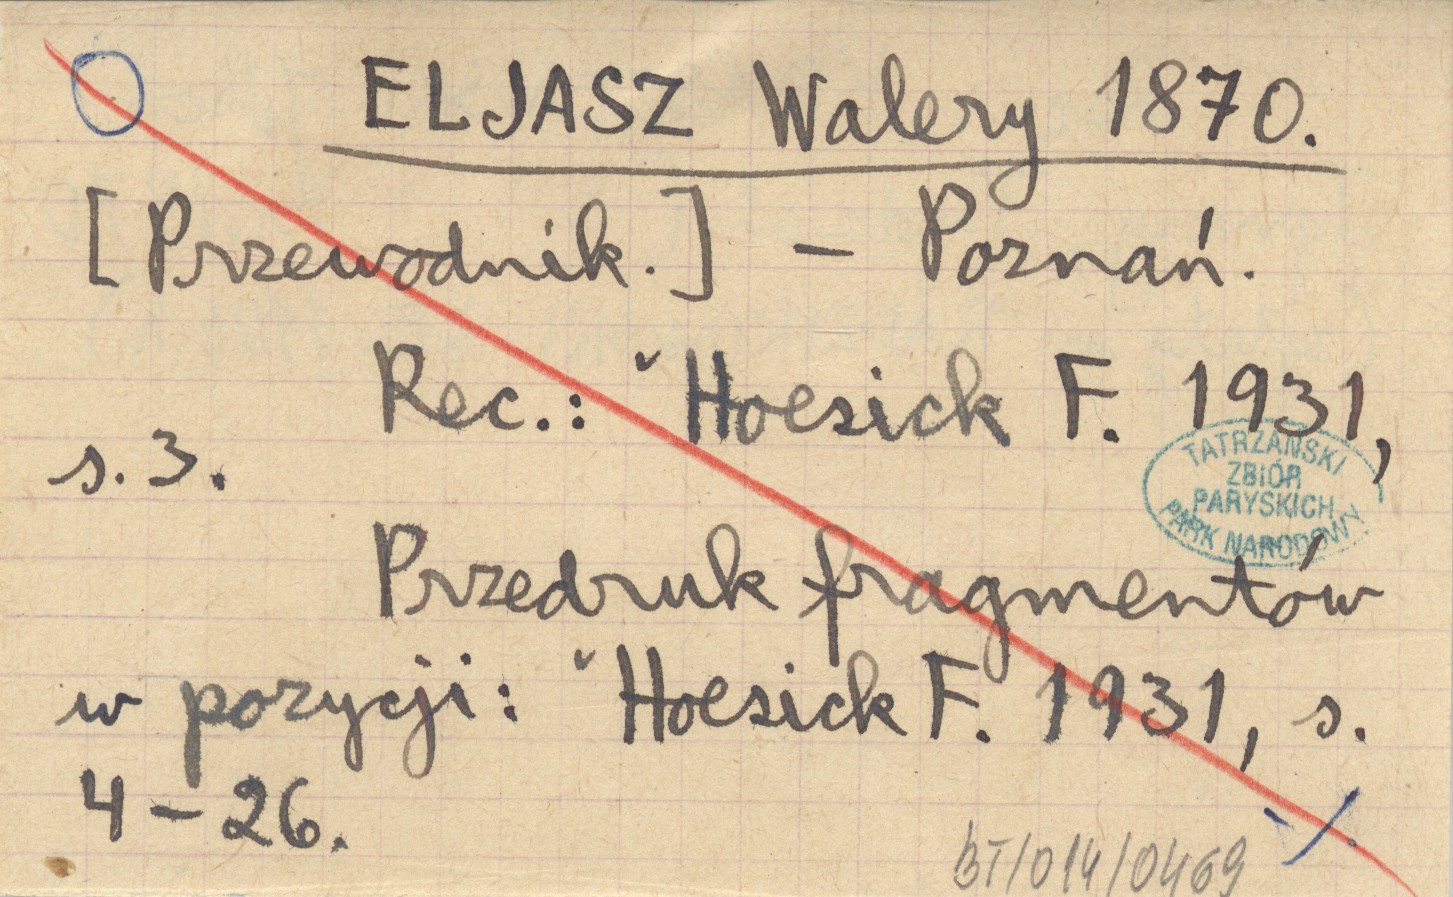 ELJASZ Walery 1870.
[Przewodnik.] – Poznań.
Rec.: ˇHoesick F. 1931,
s. 3.
TATRZAŃSKI
ZBIÓR
PARYSKICH
PARK NARODOWY
Przedruk fragmentów
w pozycji: ˇHoesick F. 1931, s.
4–26.
BT/014/0469